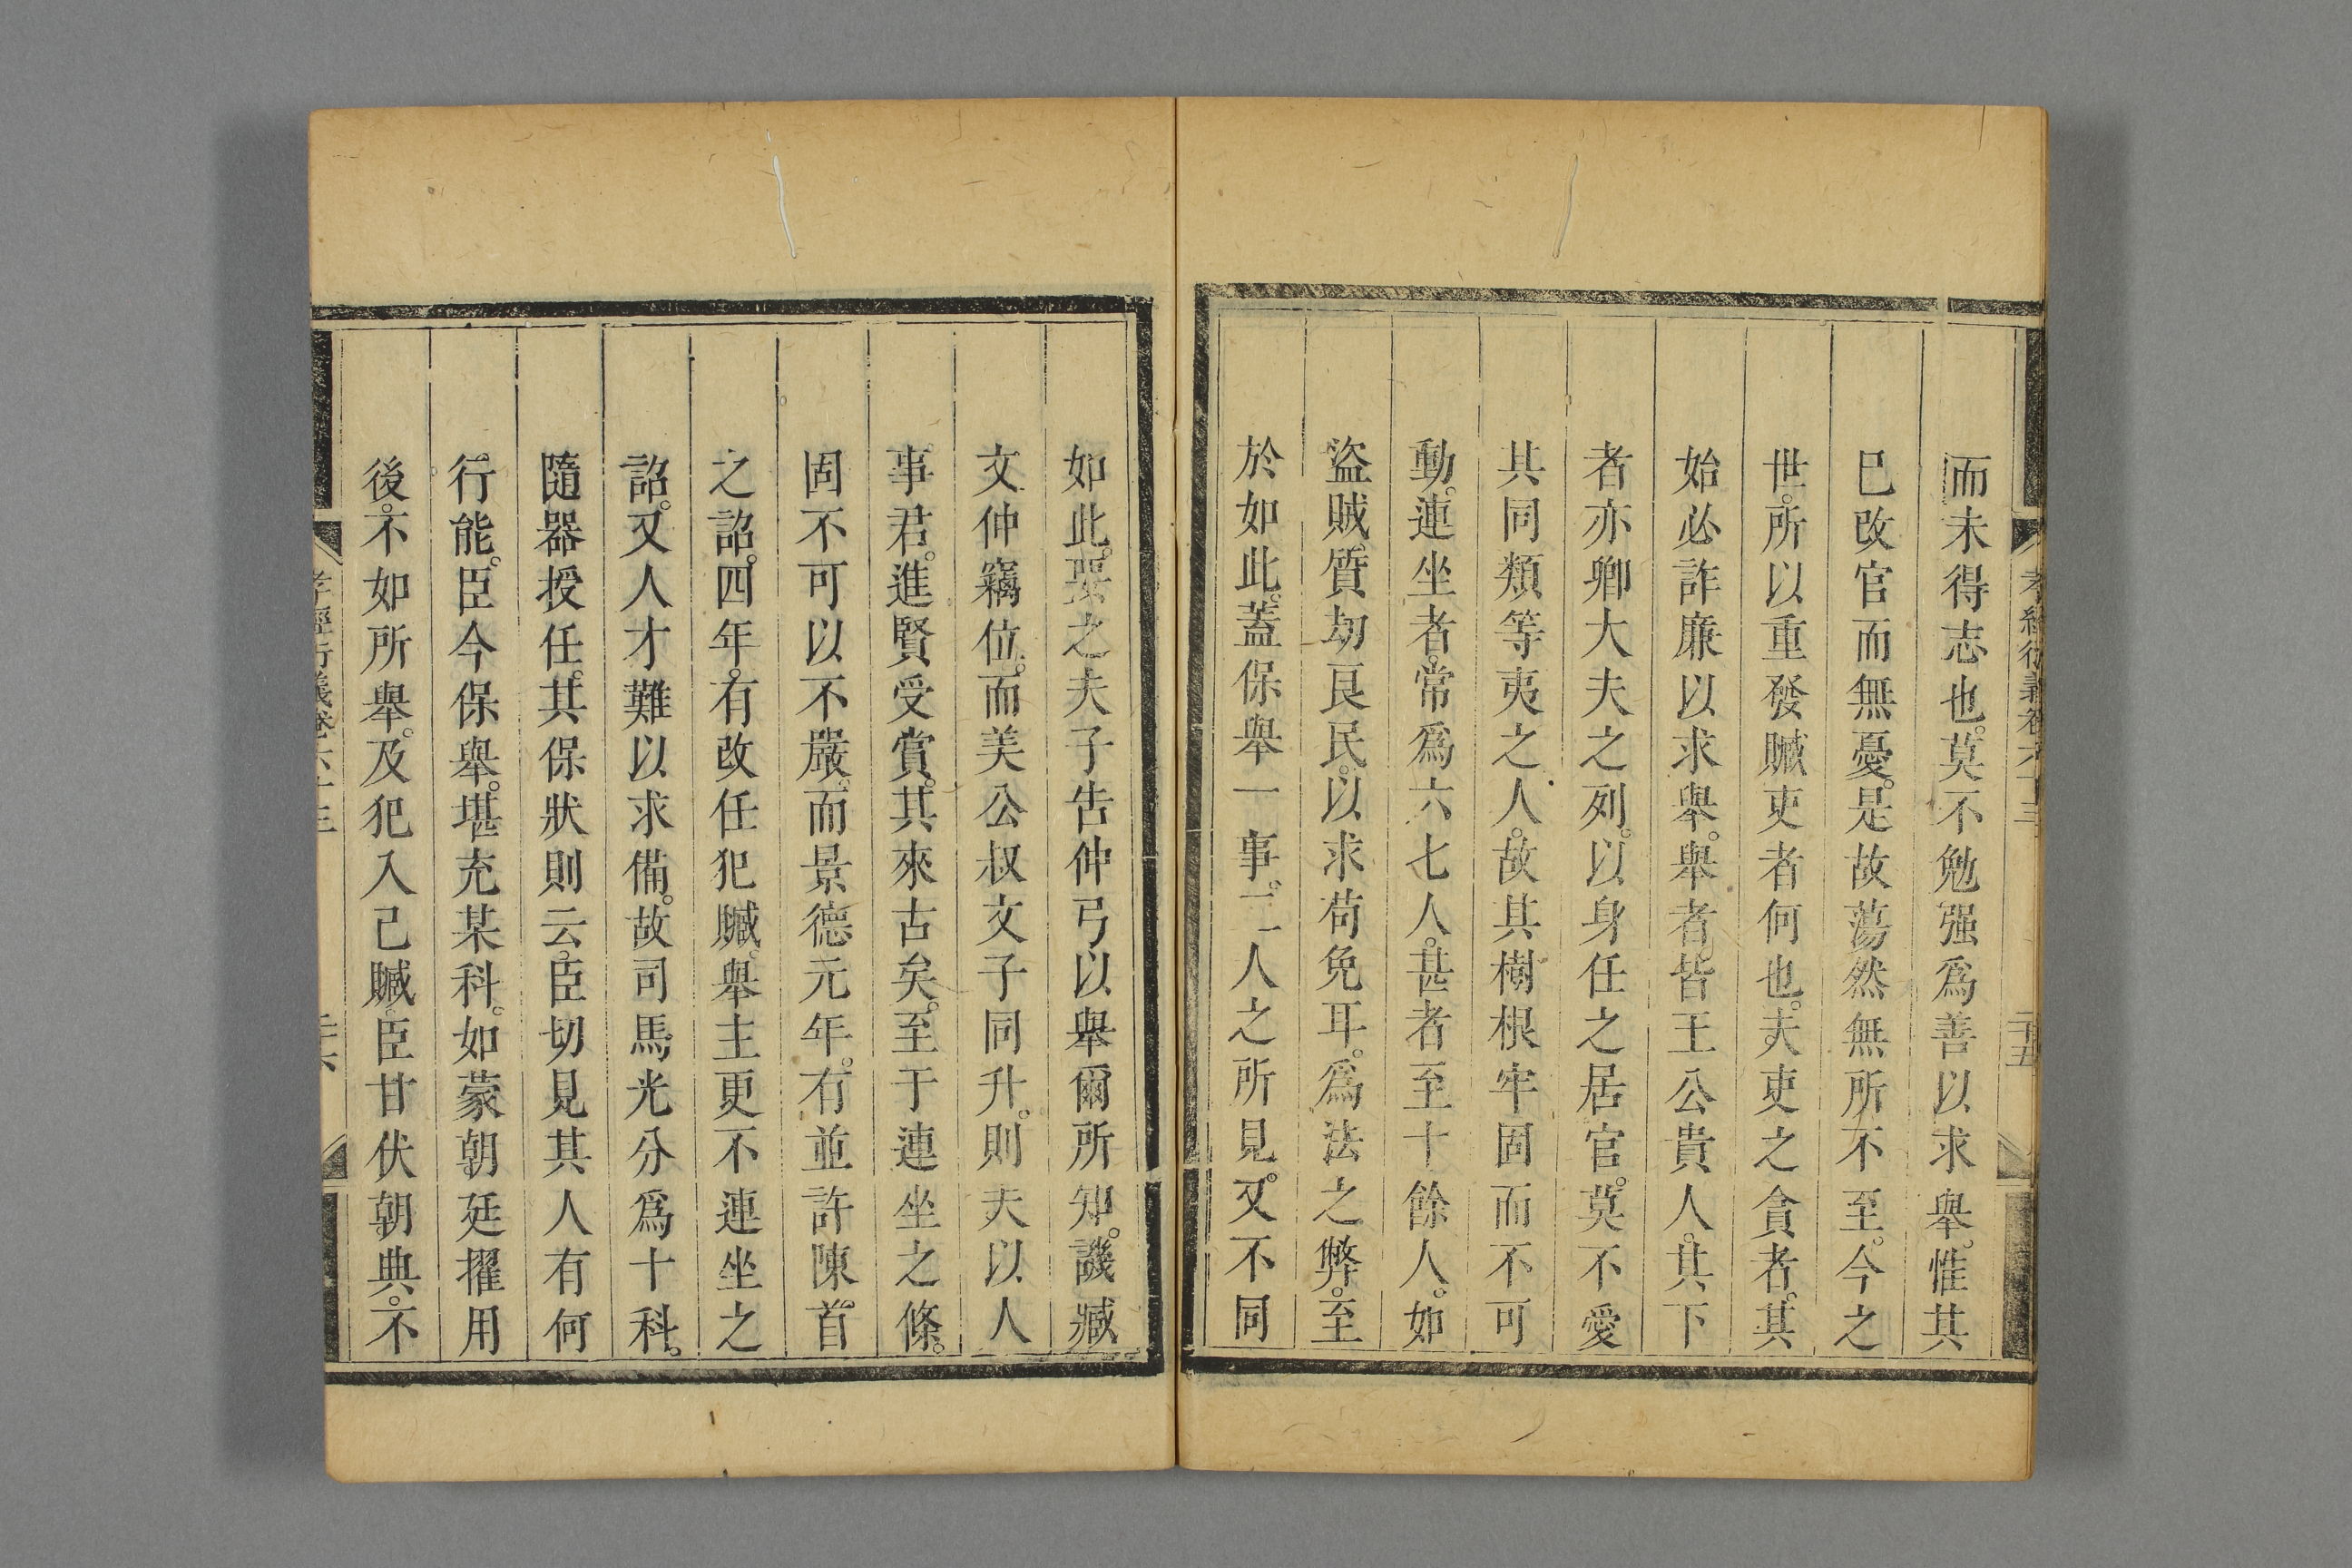 孝經衍義卷六十三
二十五
而未得志也。莫不勉强爲善以求舉。惟其
已改官而無憂。是故蕩然無所不至。今之
世。所以重發贓吏者何也。夫吏之貪者。其
始必詐廉以求舉。舉者。皆王公貴人。其下
者亦卿大夫之列。以身任之居官。莫不愛
其同類等夷之人。故其樹根牢固而不可
動。連坐者。常爲六七人。甚者至十餘人。如
盜賊質劫良民。以求苟免耳。爲法之弊。至
於如此。蓋保舉一事。二人之所見。又不同
如此。要之夫子告仲弓以舉爾所知。譏臧
文仲竊位。而美公叔文子同升。則夫以人
事君。進賢受賞。其來古矣。至于連坐之條。
固不可以不嚴。而景德元年。有並許陳首
之詔。四年。有改任犯贓。舉主更不連坐之
詔。又人才難以求備。故司馬光分爲十科。
隨器授任。其保狀則云。臣切見其人有何
行能。臣今保舉。堪充某科。如蒙朝廷擢用
後。不如所舉。及犯入己贓。臣甘伏朝典。不
孝經衍義卷六十三
二十六